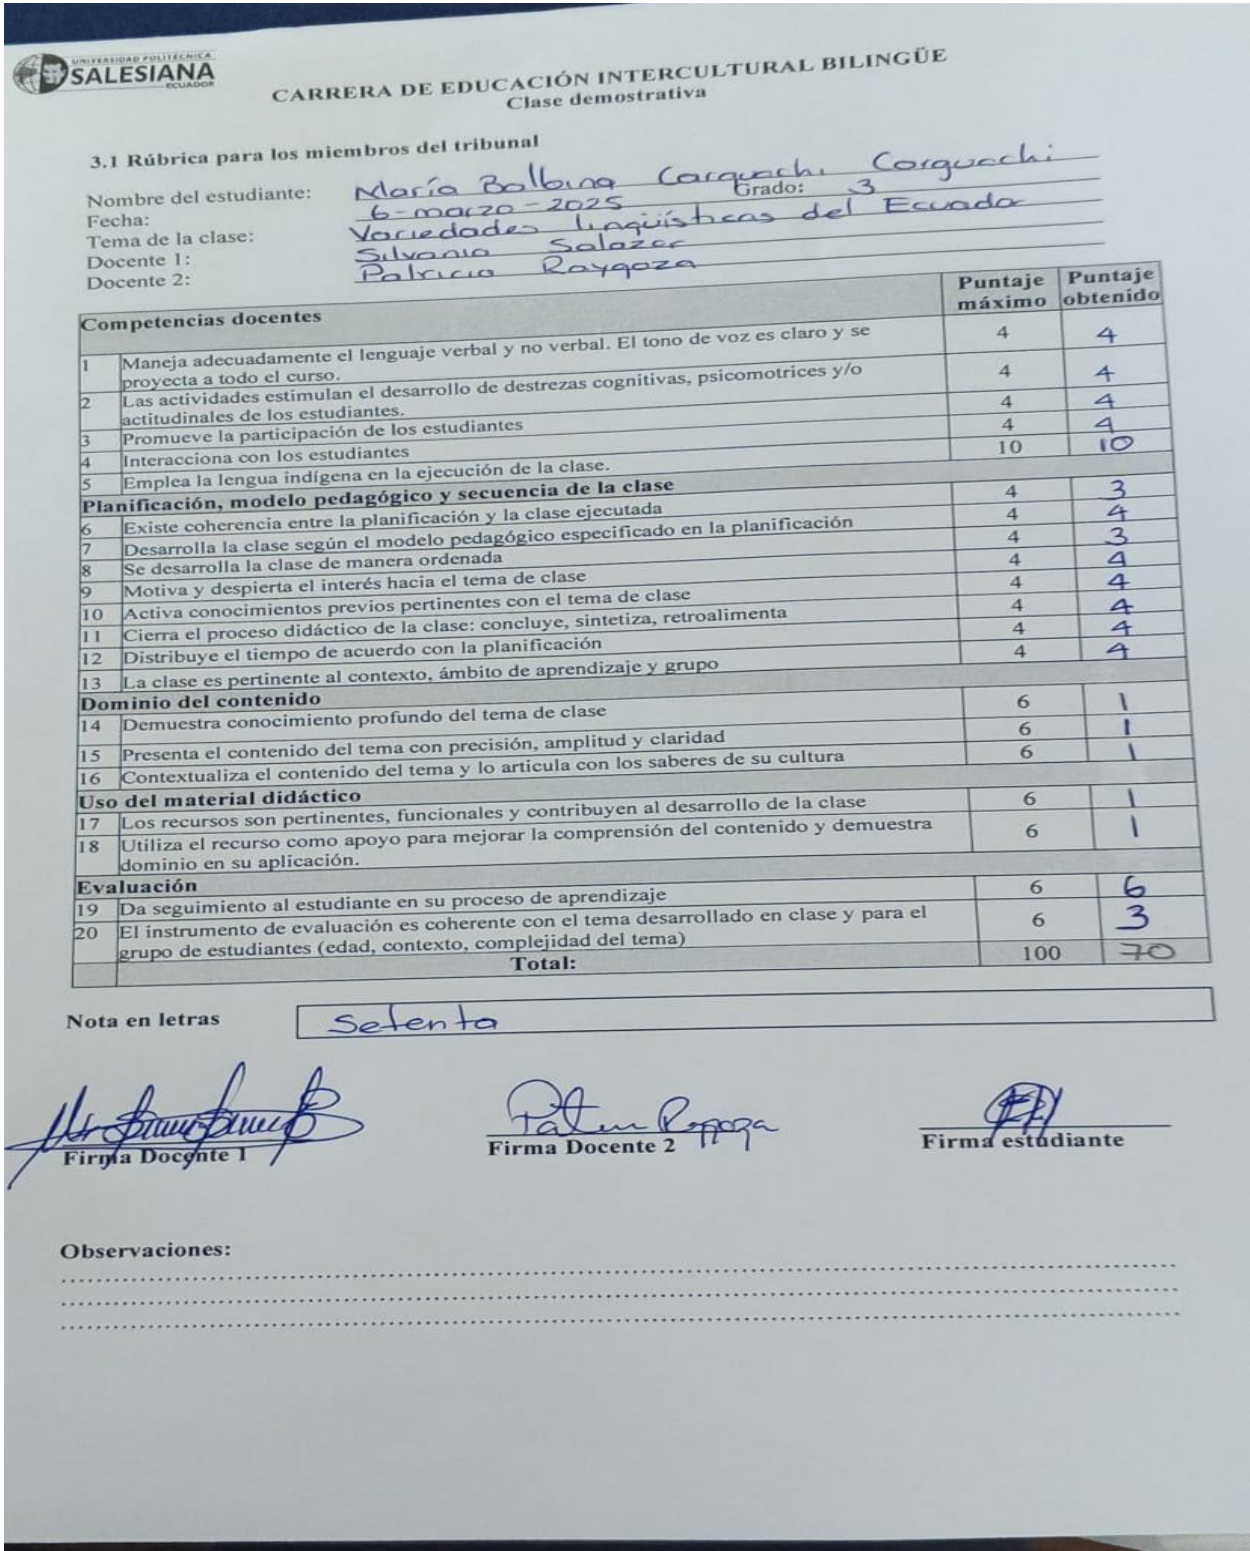 UNIVERSIDAD POLITÉCNICA
SALESIANA
ECUADOR
CARRERA DE EDUCACIÓN INTERCULTURAL BILINGÜE
Clase demostrativa
3.1 Rúbrica para los miembros del tribunal
Nombre del estudiante: María Balbina Carguachi Carguachi
Fecha: 6-marzo-2025 Grado: 3
Tema de la clase: Variedades lingüísticas del Ecuador
Docente 1: Silvania Salazar
Docente 2: Patricia Raygoza
Competencias docentes Puntaje máximo Puntaje obtenido
1 Maneja adecuadamente el lenguaje verbal y no verbal. El tono de voz es claro y se 4 4
proyecta a todo el curso.
2 Las actividades estimulan el desarrollo de destrezas cognitivas, psicomotrices y/o 4 4
actitudinales de los estudiantes.
3 Promueve la participación de los estudiantes 4 4
4 Interacciona con los estudiantes 4 4
5 Emplea la lengua indígena en la ejecución de la clase. 10 10
Planificación, modelo pedagógico y secuencia de la clase
6 Existe coherencia entre la planificación y la clase ejecutada 4 3
7 Desarrolla la clase según el modelo pedagógico especificado en la planificación 4 4
8 Se desarrolla la clase de manera ordenada 4 3
9 Motiva y despierta el interés hacia el tema de clase 4 4
10 Activa conocimientos previos pertinentes con el tema de clase 4 4
11 Cierra el proceso didáctico de la clase: concluye, sintetiza, retroalimenta 4 4
12 Distribuye el tiempo de acuerdo con la planificación 4 4
13 La clase es pertinente al contexto, ámbito de aprendizaje y grupo 4 4
Dominio del contenido
14 Demuestra conocimiento profundo del tema de clase 6 1
15 Presenta el contenido del tema con precisión, amplitud y claridad 6 1
16 Contextualiza el contenido del tema y lo articula con los saberes de su cultura 6 1
Uso del material didáctico
17 Los recursos son pertinentes, funcionales y contribuyen al desarrollo de la clase 6 1
18 Utiliza el recurso como apoyo para mejorar la comprensión del contenido y demuestra 6 1
dominio en su aplicación.
Evaluación
19 Da seguimiento al estudiante en su proceso de aprendizaje 6 6
20 El instrumento de evaluación es coherente con el tema desarrollado en clase y para el 6 3
grupo de estudiantes (edad, contexto, complejidad del tema)
Total: 100 70
Nota en letras Setenta
Firma Docente 1 Firma Docente 2 Firma estudiante
Observaciones: